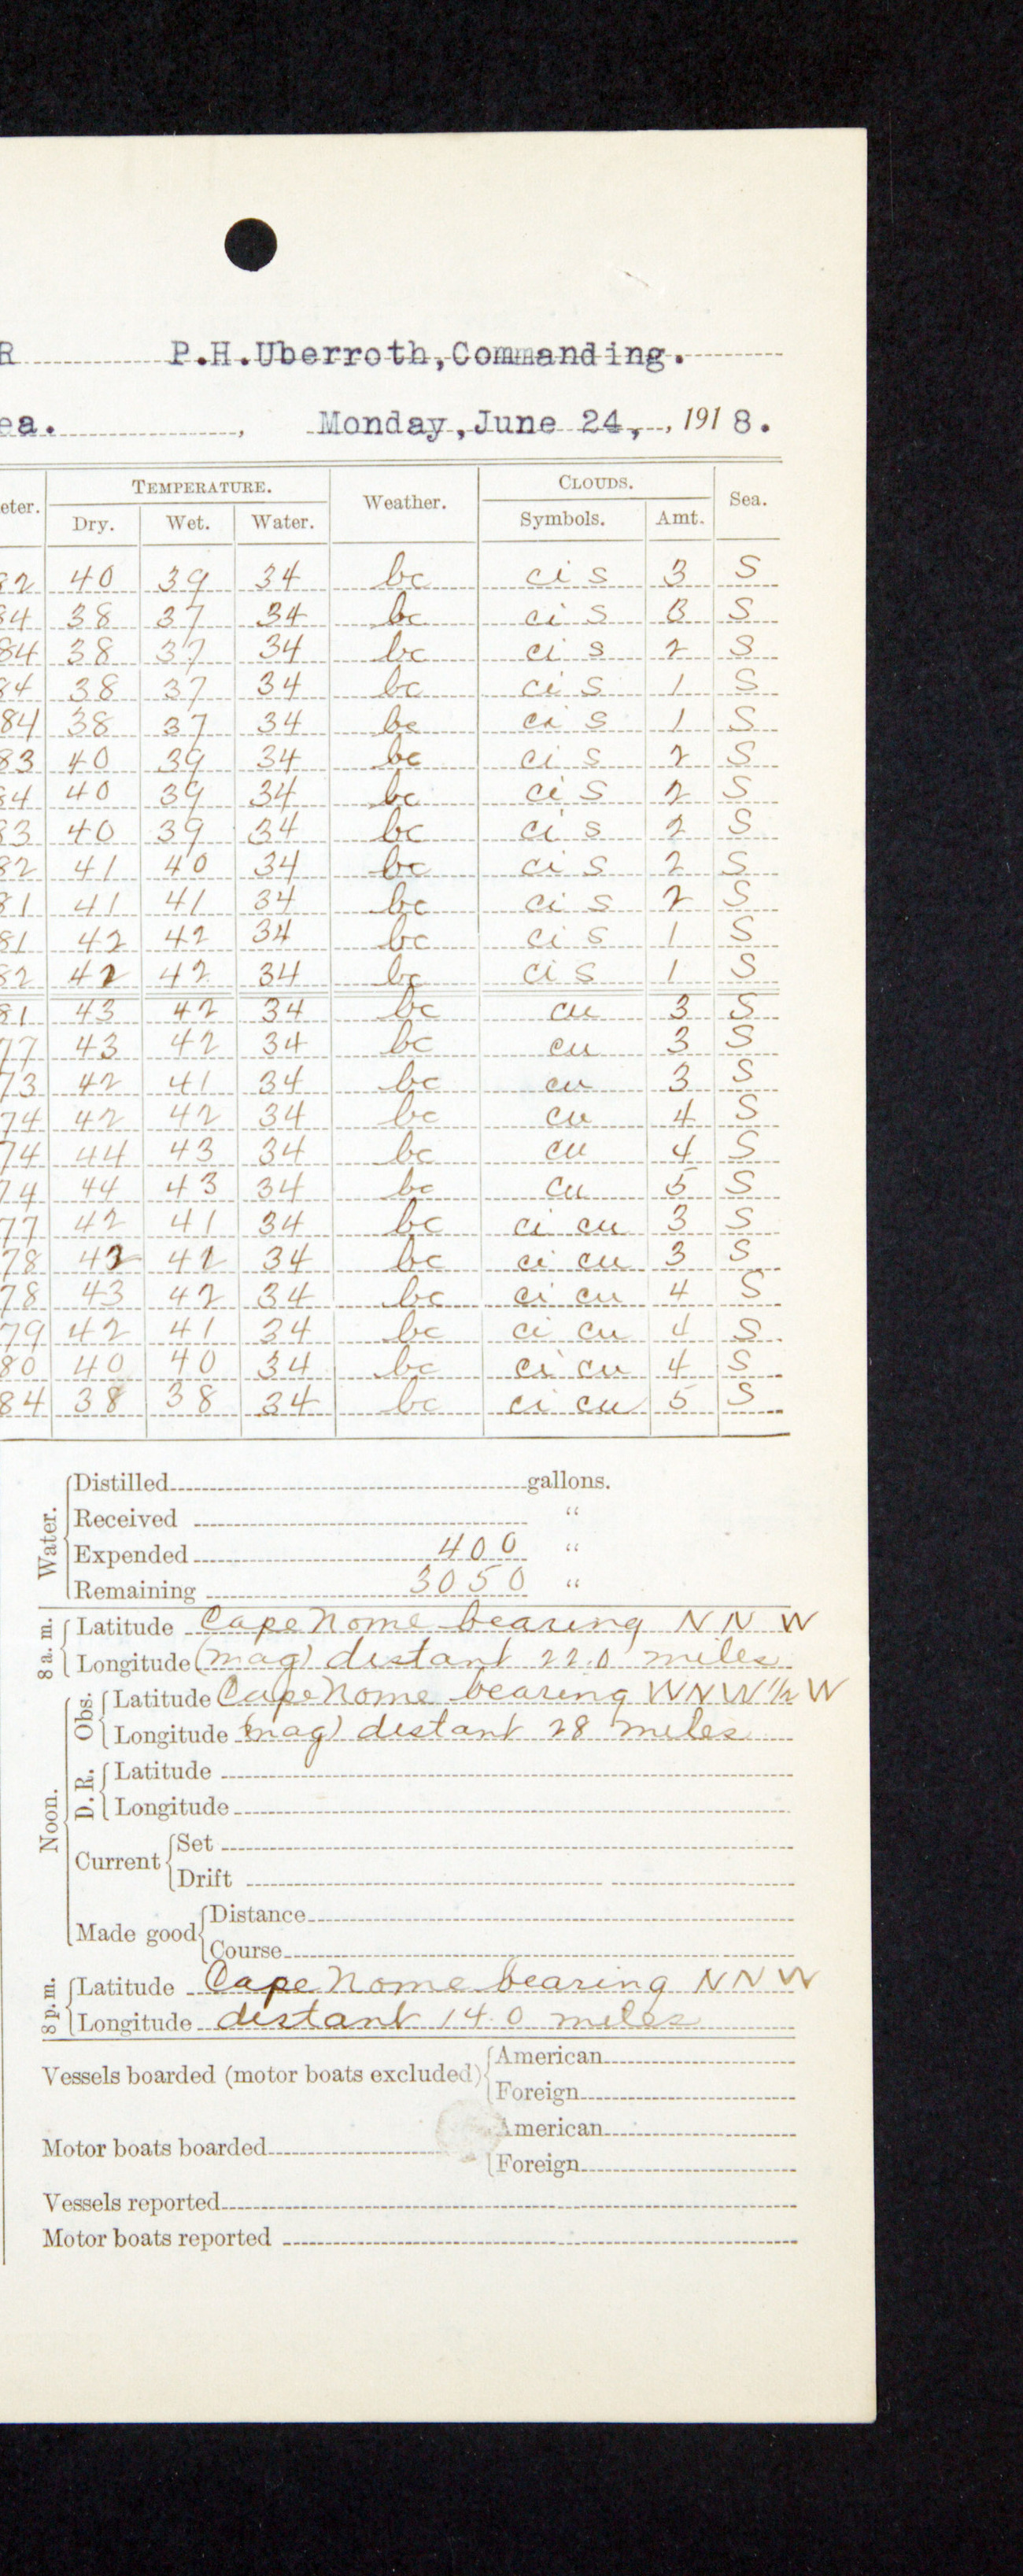 R P.H.Uberroth,Commanding.
ea. , Monday,June 24, , 1918.
eter. TEMPERATURE. Weather. CLOUDS. Sea.
Dry. Wet. Water. Symbols. Amt.
82 40 39 34 bc ci s 3 S
84 38 37 34 bc ci s 3 S
84 38 37 34 bc ci s 2 S
84 38 37 34 bc ci s 1 S
84 38 37 34 bc ci s 1 S
83 40 39 34 bc ci s 2 S
84 40 39 34 bc ci s 2 S
83 40 39 34 bc ci s 2 S
82 41 40 34 bc ci s 2 S
81 41 41 34 bc ci s 2 S
81 42 42 34 bc ci s 1 S
82 42 42 34 bc ci s 1 S
81 43 42 34 bc cu 3 S
77 43 42 34 bc cu 3 S
73 42 41 34 bc cu 3 S
74 42 42 34 bc cu 4 S
74 44 43 34 bc cu 4 S
74 44 43 34 bc cu 5 S
77 42 41 34 bc ci cu 3 S
78 42 42 34 bc ci cu 3 S
78 43 42 34 bc ci cu 4 S
79 42 41 34 bc ci cu 4 S
80 40 40 34 bc ci cu 4 S
84 38 38 34 bc ci cu 5 S
Water.
Distilled gallons.
Received "
Expended 400 "
Remaining 3050 "
8 a. m.
Latitude Cape Nome bearing N N W
Longitude (mag) distant 22.0 miles
Noon.
Obs.
Latitude Cape Nome bearing WNW 1/2 W
Longitude (mag) distant 28 miles
D. R.
Latitude
Longitude
Current
Set
Drift
Made good
Distance
Course
8 p. m.
Latitude Cape Nome bearing N N W
Longitude distant 14.0 miles
Vessels boarded (motor boats excluded)
American
Foreign
Motor boats boarded
American
Foreign
Vessels reported
Motor boats reported